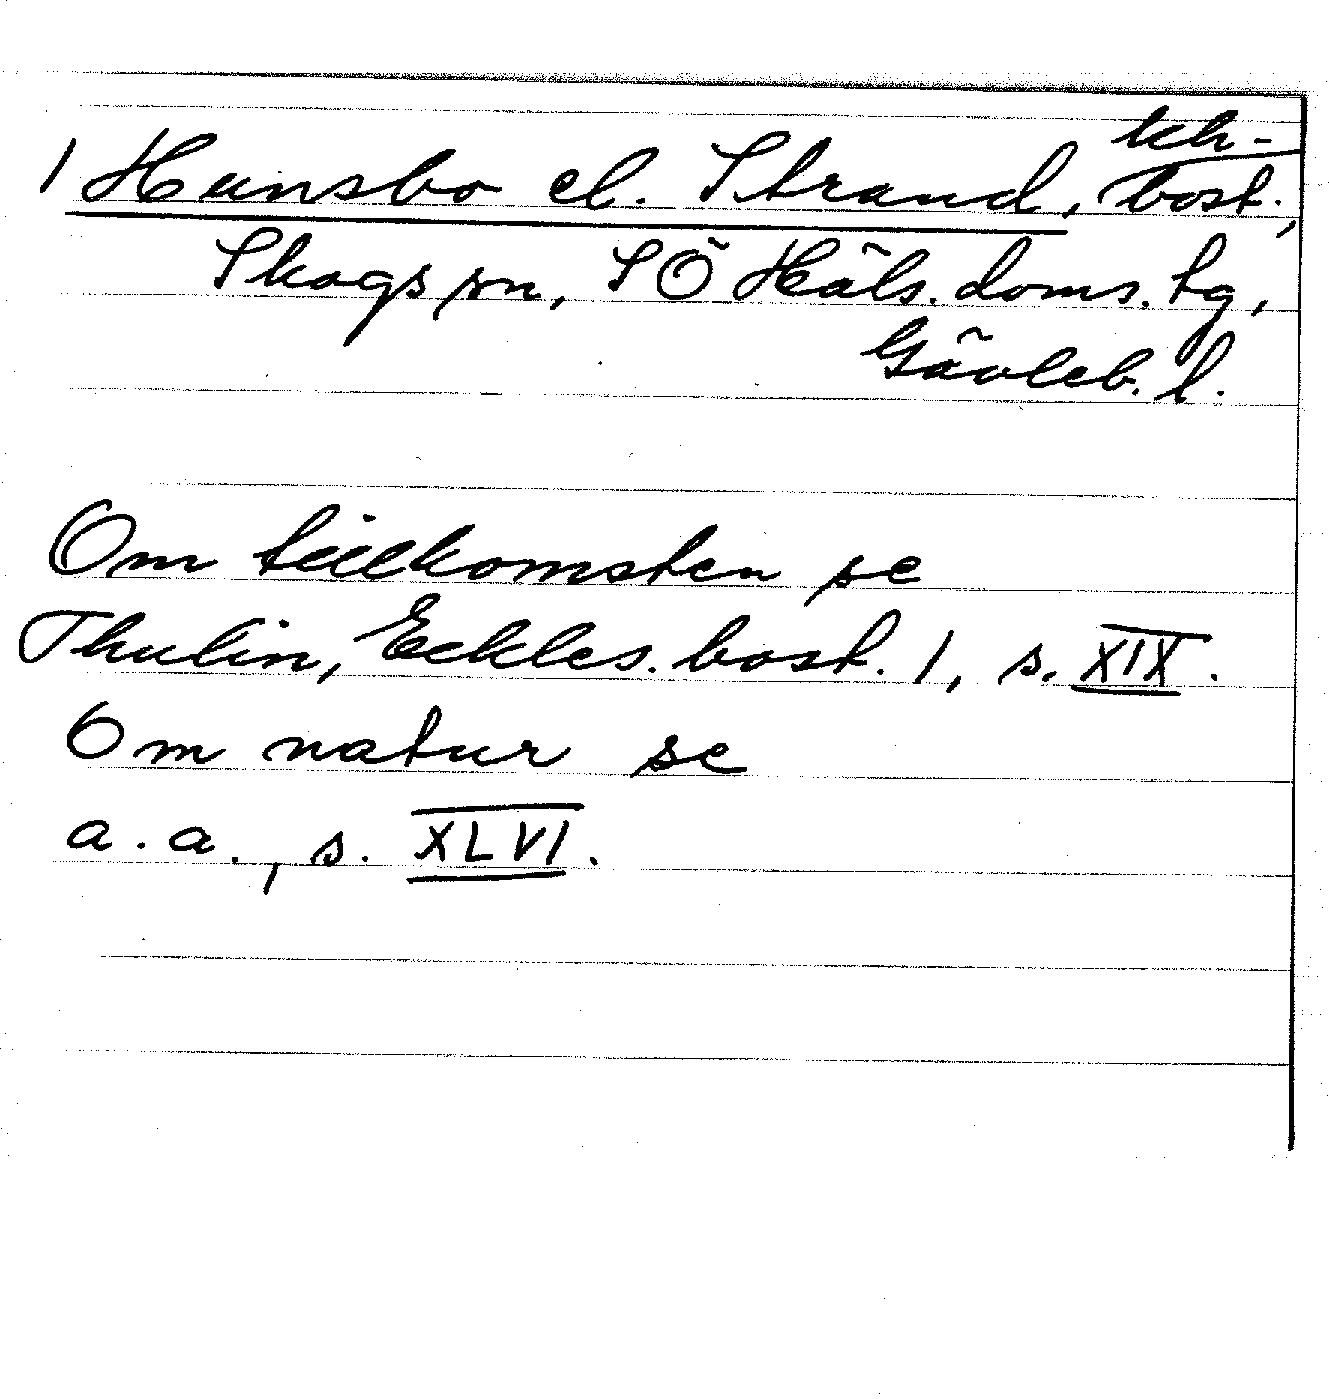 1 Hunsbo el. Strand, kh-
bost.,
Skogs sn, SÖ Häls. doms. tg,
Gävleb. l.
Om tillkomsten se
Thulin, Eckles. bost. 1, s. XIX.
Om natur se
a. a., s. XLVI.